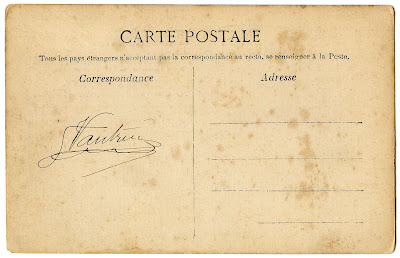 CARTE POSTALE
Tous les pays étrangers n'acceptant pas la correspondance au recto, se renseigner à la Poste.
Correspondance
Adresse